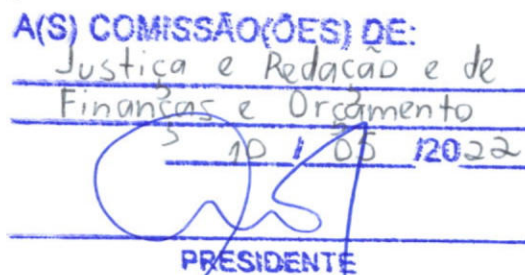 A(S) COMISSÃO(ÕES) DE:
Justiça e Redação e de
Finanças e Orçamento
10 / 05 /2022
PRESIDENTE